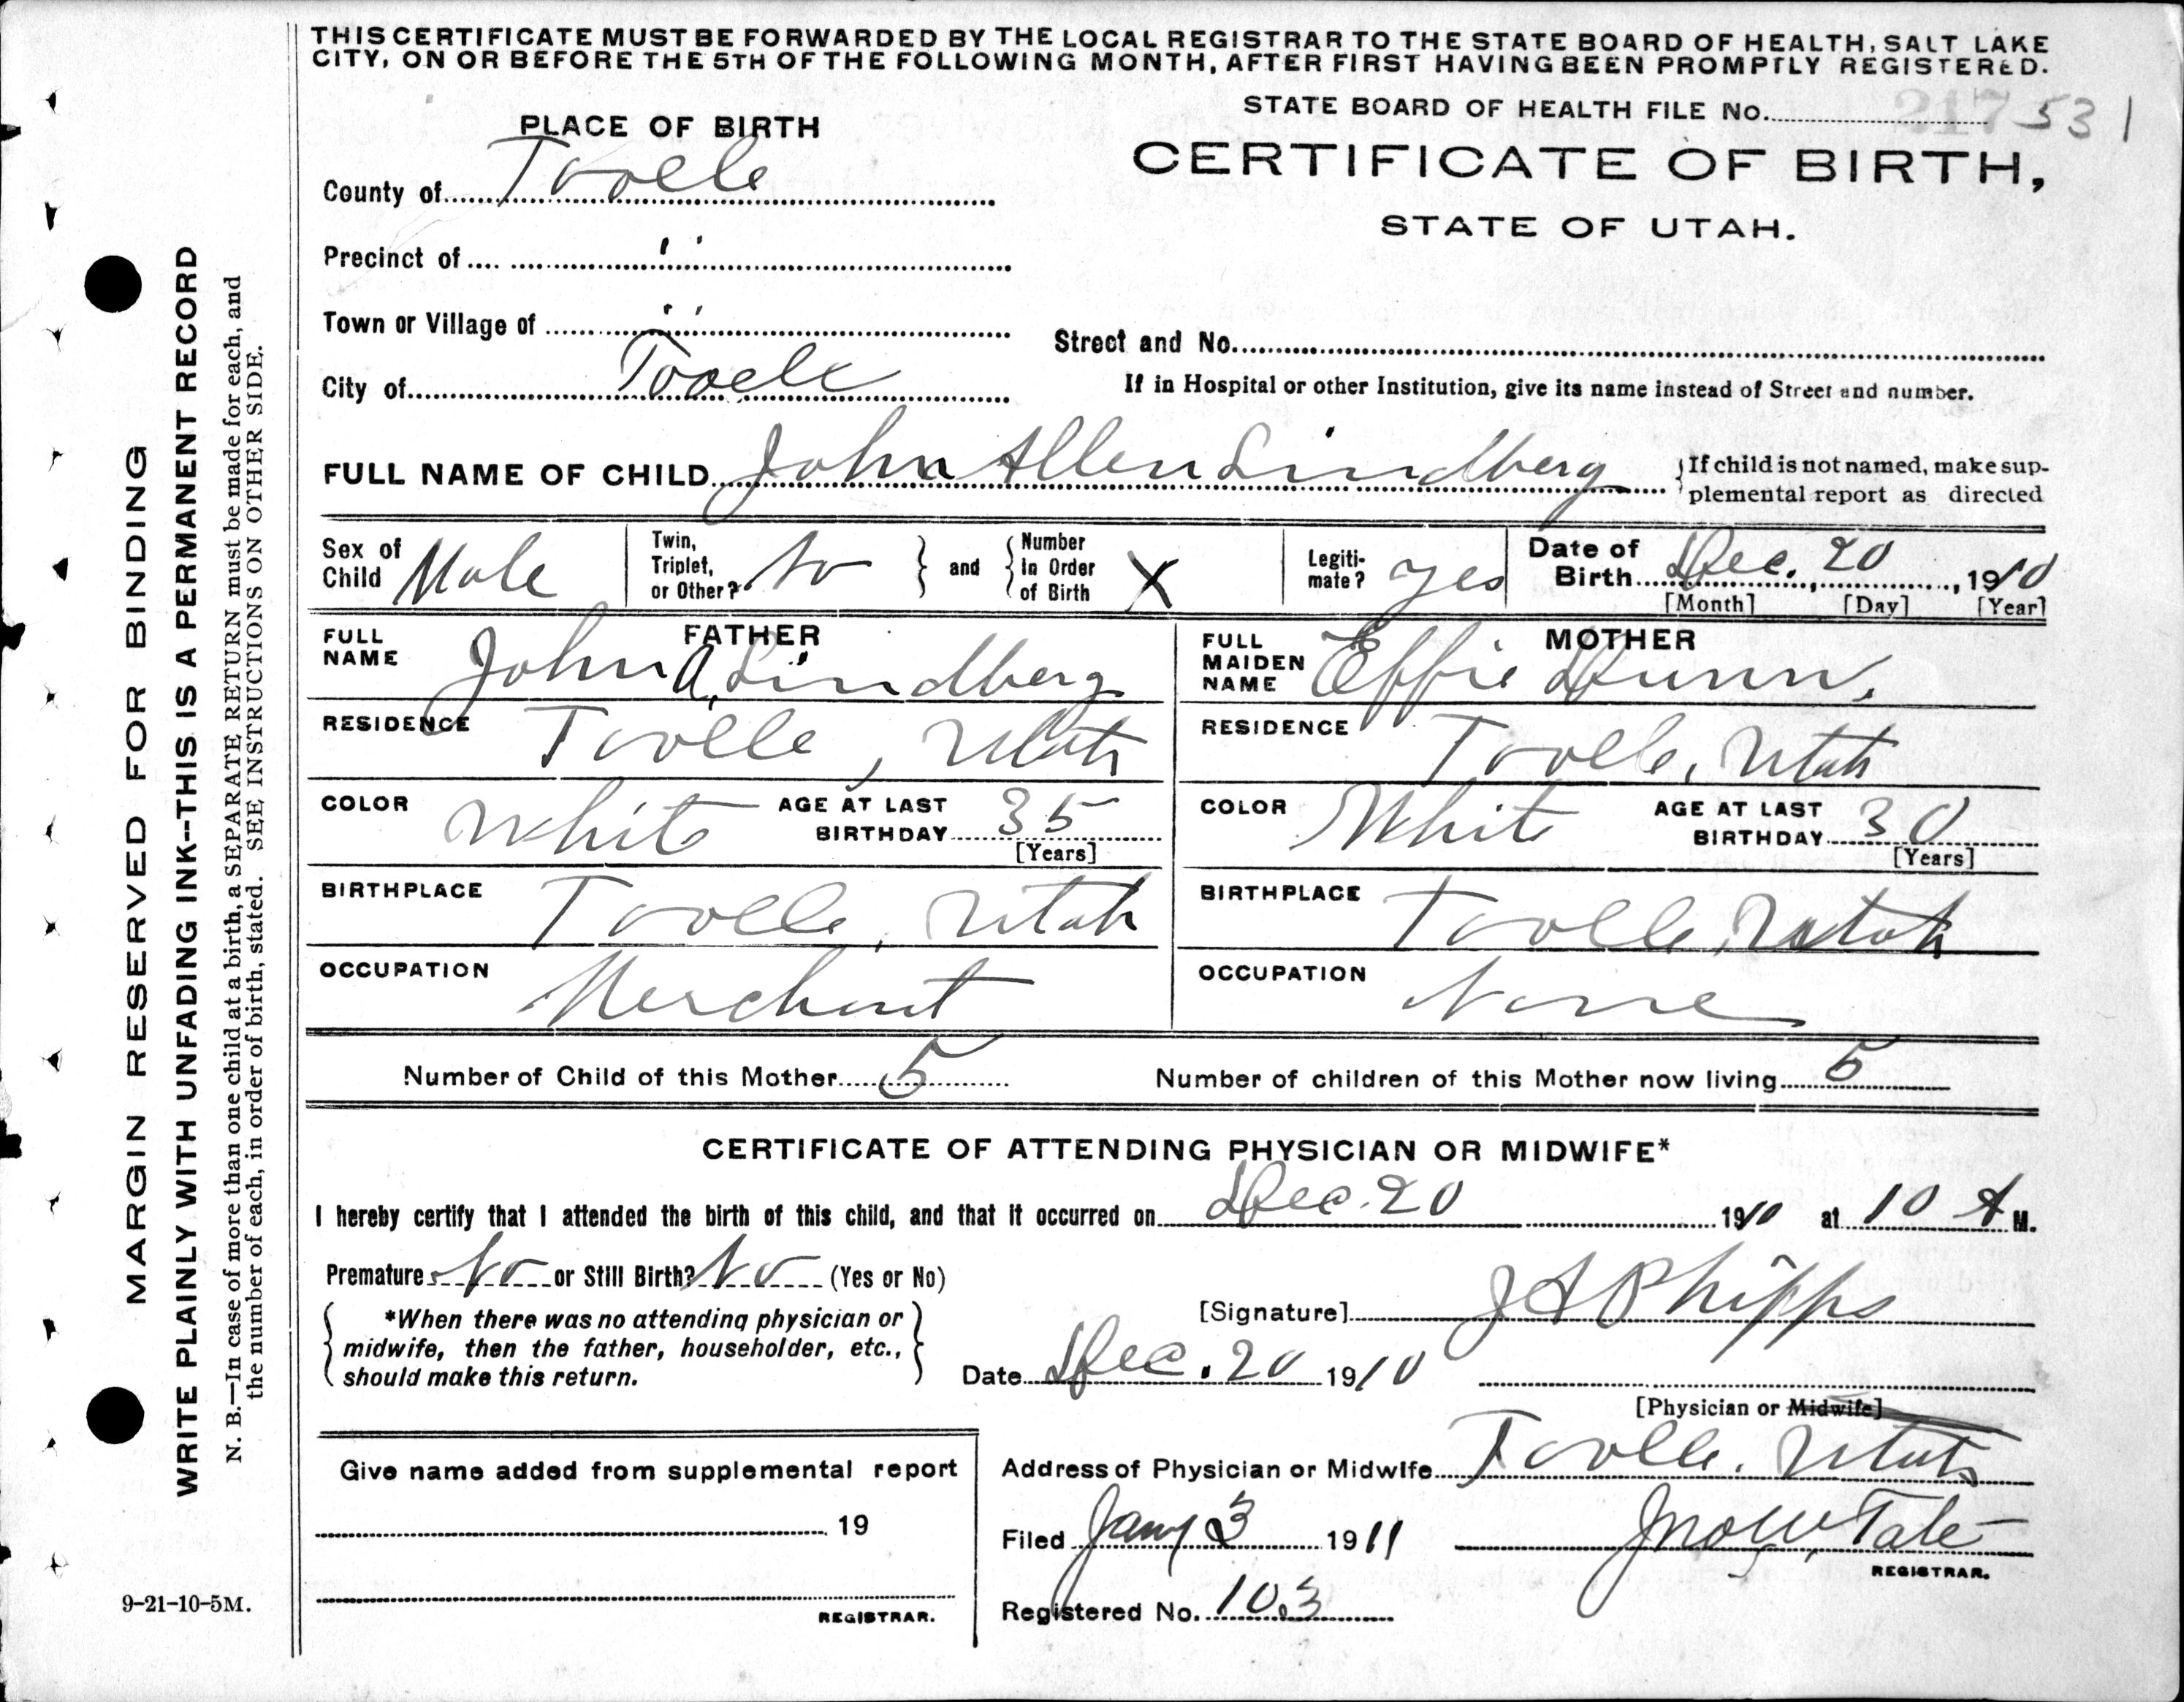 THIS CERTIFICATE MUST BE FORWARDED BY THE LOCAL REGISTRAR TO THE STATE BOARD OF HEALTH, SALT LAKE
CITY, ON OR BEFORE THE 5TH OF THE FOLLOWING MONTH, AFTER FIRST HAVING BEEN PROMPTLY REGISTERED.
STATE BOARD OF HEALTH FILE No. 217 531
CERTIFICATE OF BIRTH,
STATE OF UTAH.
PLACE OF BIRTH
County of Tooele
Precinct of "
Town or Village of "
City of Tooele
Street and No.
If in Hospital or other Institution, give its name instead of Street and number.
FULL NAME OF CHILD John Allen Lindberg
{If child is not named, make sup-
plemental report as directed
Sex of Child Male
Twin, Triplet, or Other? No } and { Number In Order of Birth X
Legiti-mate? yes
Date of Birth Dec. 20, 1910
[Month] [Day] [Year]
FATHER
FULL NAME John A. Lindberg
RESIDENCE Tooele, Utah
COLOR White AGE AT LAST BIRTHDAY 35
[Years]
BIRTHPLACE Tooele, Utah
OCCUPATION Merchant
MOTHER
FULL MAIDEN NAME Effie Dunn.
RESIDENCE Tooele, Utah
COLOR White AGE AT LAST BIRTHDAY 30
[Years]
BIRTHPLACE Tooele, Utah
OCCUPATION None
Number of Child of this Mother 5
Number of children of this Mother now living 5
CERTIFICATE OF ATTENDING PHYSICIAN OR MIDWIFE*
I hereby certify that I attended the birth of this child, and that it occurred on Dec. 20 1910 at 10 A M.
Premature No or Still Birth? No (Yes or No)
{ *When there was no attending physician or
midwife, then the father, householder, etc.,
should make this return. }
[Signature] J A Phipps
Date Dec. 20 1910
[Physician or Midwife]
Address of Physician or Midwife Tooele, Utah
Filed Jany 3 1911
Jno W. Tate
REGISTRAR.
Registered No. 103
Give name added from supplemental report
19
REGISTRAR.
MARGIN RESERVED FOR BINDING
WRITE PLAINLY WITH UNFADING INK--THIS IS A PERMANENT RECORD
N. B.—In case of more than one child at a birth, a SEPARATE RETURN must be made for each, and
the number of each, in order of birth, stated. SEE INSTRUCTIONS ON OTHER SIDE.
9-21-10-5M.